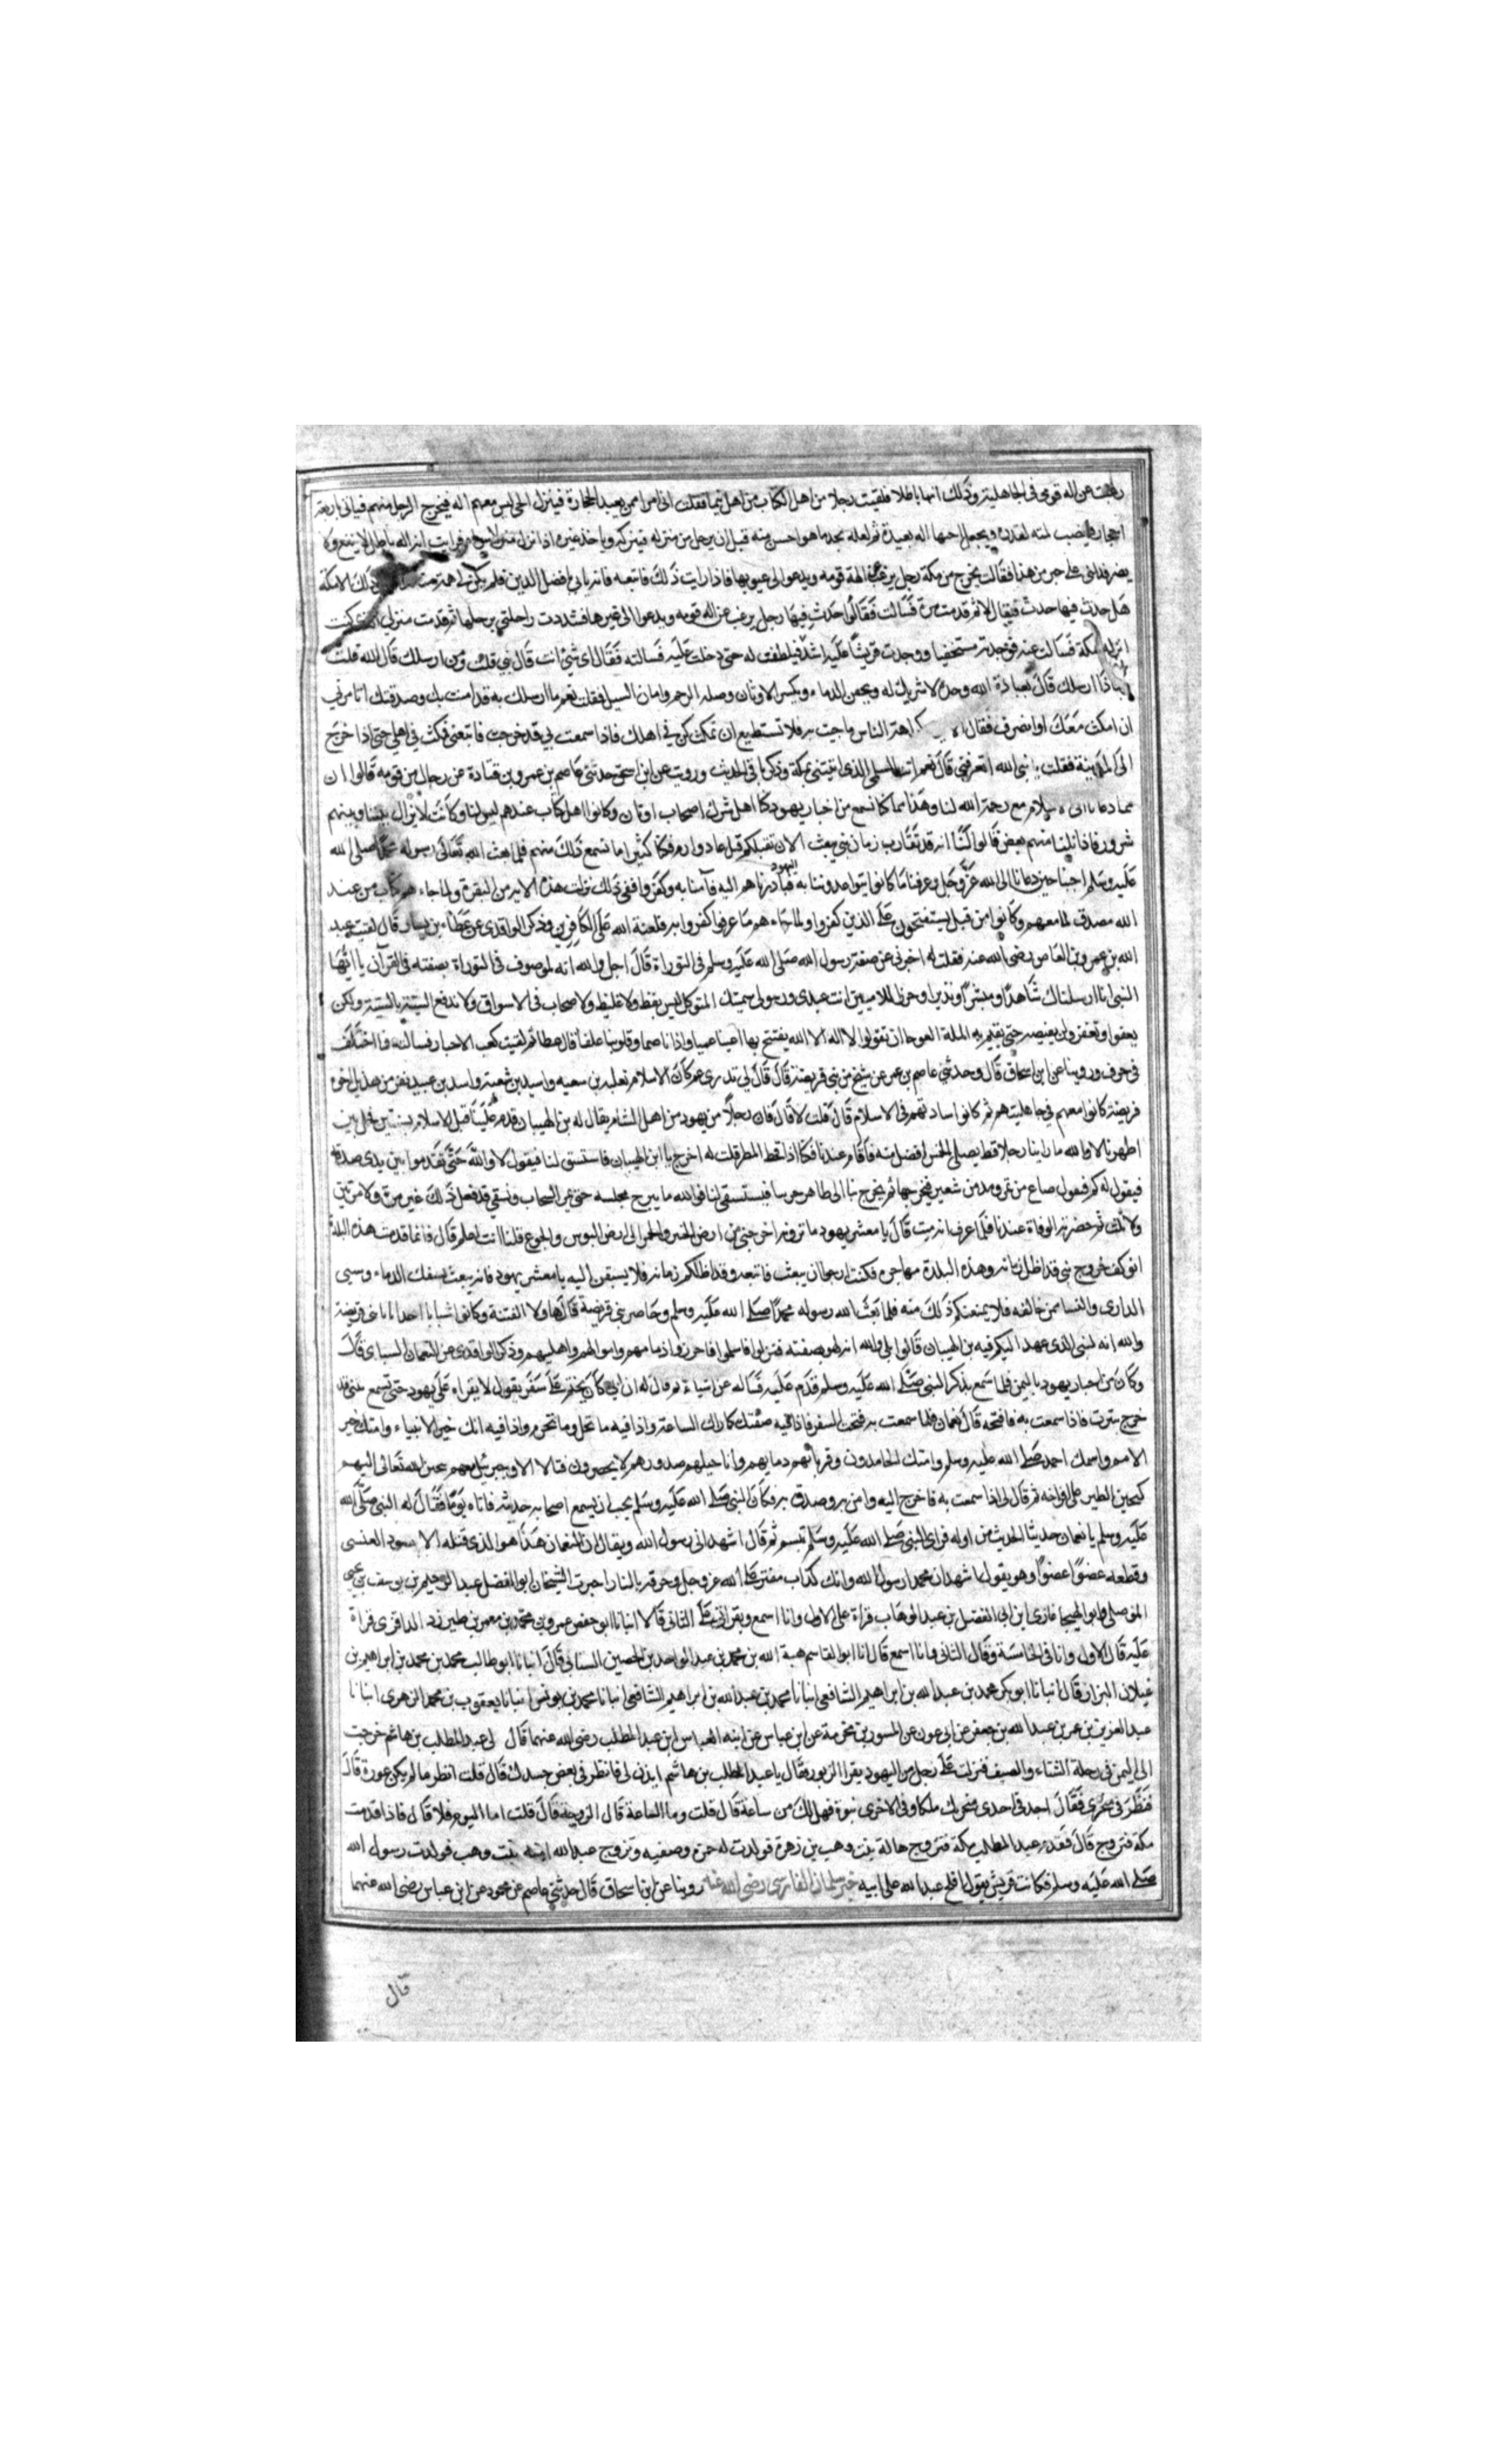 رغبت عن اله قومي في الجاهلية وذلك انها باطلا فلقيت رجلا من اهل الكتاب من اهل تيما فقلت اني امرا ممن يعبد الحجارة فينزل الحي ليس معهم اله فيخرج الرجل منهم فياتي باربعة
احجار فينصب ثلثه لقدره ويجعل احسنها اله يعبده ثم لعله يجد ما هو احسن منه قبل ان يرحل من منزله فيتركه وياخذ غيره اذا نزل منزلا فرايت انه اله باطل لا ينفع ولا
يضر فدلني على خير من هذا فقالت يخرج من مكة رجل يرغب عن الهة قومه ويدعوا الى غيرها فاذا رايت ذلك فاتبعه فانه ياتي بافضل الدين فلم يكن لي همة منذ ذلك الا مكة
هل حدث فيها حدث فيقال لا ثم قدمت مرة فسالت فقالوا حدث فيها رجل يرغب عن اله قومه ويدعوا الى غيرها فشددت راحلتي برحلها ثم قدمت منزلي كنت
انزله بمكة فسالت عنه فوجدته مستخفيا ووجدت قريشا عليه اشدا فتلطفت له حتى دخلت عليه فسالته فقال اي شي انت قال نبي قلت ومن ارسلك قال الله قلت
بماذا ارسلك قال بعبادة الله وحده لا شريك له وبحقن الدماء وبكسر الاوثان وصله الرحم وامان السبيل فقلت نعم ما ارسلك به قد امنت بك وصدقتك اتامرني
ان امكث معك او انصرف فقال الا ترى كراهة الناس ما جيت به فلا تستطيع ان تمكث كن في اهلك فاذا سمعت بي قد خرجت فاتبعني فمكثت في اهلي حتى اذا خرج
الى المدينة فقلت يا نبي الله اتعرفني قال نعم انت السلمي الذي اتيتني بمكة وذكر باقي الحديث وروينا عن ابن اسحق حدثني عاصم بن عمرو بن قتادة عن رجال من قومه قالوا ان
مما دعانا الى الاسلام مع رحمة الله لنا وهداه مما كنا نسمع من احبار يهود كنا اهل شرك اصحاب اوثان وكانوا اهل كتاب عندهم ليس لنا وكانت لا يزال بيننا وبينهم
شرور فاذا نلنا منهم بعض قالوا لنا انه قد تقارب زمان نبي يبعث الان نقتلكم قتل عاد وارم فكنا كثيرا ما نسمع ذلك منهم فلما بعث الله تعالى رسوله محمدا صلى الله
عليه وسلم اجبنا حين دعانا الى الله عز وجل وعرفنا ما كانوا يتواعدوننا به فبادرناهم اليه فآمنا به وكفروا ففي ذلك نزلت هذه الايه من البقرة ولما جاءهم كتاب من عند
الله مصدق لما معهم وكانوا من قبل يستفتحون على الذين كفروا ولما جاءهم ما عرفوا كفروا به فلعنة الله على الكافرين وذكر الواقدي عن عطاء بن يسار قال لقيت عبد
الله بن عمرو بن العاص رضي الله عنه فقلت له اخبرني عن صفة رسول الله صلى الله عليه وسلم في التوراة قال اجل والله انه لموصوف في التوراة بصفته في القرآن يا ايها
النبي انا ارسلناك شاهدا ومبشرا ونذيرا وحرزا للاميين انت عبدي ورسولي سميتك المتوكل ليس بفظ ولا غليظ ولا صخاب في الاسواق ولا ندفع السية بالسية ولكن
يعفوا ويغفر ولن يقبضه حتى يقيم به الملة العوجا ان تقولوا لا اله الا الله يفتتح بها اعينا عميا واذانا صما وقلوبنا غلفا قال عطا ثم لقيت كعب الاحبار فسالته فما اختلف
في حرف وروينا عن ابن اسحاق قال وحدثني عاصم بن عمر عن شيخ من بني قريضة قال قال لي تدري عم كان الاسلام ثعلبة بن سعيه واسيد بن شعية واسد بن عبيد نفر من هديل اخوة
قريضة كانوا معهم في جاهليتهم ثم كانوا ساداتهم في الاسلام قال قلت لا قال فان رجلا من يهود من اهل الشام يقال له بن الهيبان قدم علينا قبل الاسلام بسنتين فحل بين
اظهرنا لا والله ما راينا رجلا قط يصلي الخمس افضل منه فاقام عندنا فكنا اذا قحط المطر قلت له اخرج يا ابن الهيبان فاستسق لنا فيقول لا والله حتى تقدموا بين يدي صدقة
فيقول له كم فيقول صاع من تمر ومد من شعير فيخرجها ثم يخرج بنا الى ظاهر حرسا فيستسقى لنا فوالله ما يبرح مجلسه حتى يمر السحاب ونسقي قد فعل ذلك غير مرة ولا مرتين
ولا ثلث ثم حضرته الوفاة عندنا فلما عرف انه ميت قال يا معشر يهود ما ترونه اخرجني من ارض الخمر والخمر الى ارض البوس والجوع قلنا انت اعلم قال فانما قدمت هذه البلدة
اتوكف خروج نبي قد اظل زمانه وهذه البلدة مهاجره فكنت ارجوا ان يبعث فاتبعه وقد اظلكم زمانه فلا يسبقن اليه يا معشر يهود فانه يبعث بسفك الدماء وسبي
الذاري والنسا ممن خالفه فلا يمنعنكم ذلك منه فلما بعث الله رسوله محمدا صلى الله عليه وسلم وحاصر بني قريضة قال هاولا الفتية وكانوا شبابا احداثا يا بني قريضة
والله انه لنبي الذي عهد اليكم فيه بن الهيبان قالوا بلى والله انه لهو بصفته فنزلوا فاسلموا فاحرزوا دمامهم واموالهم واهليهم وذكر الواقدي عن النعمان السباي قال
وكان من احبار يهود باليمن فلما سمع بذكر النبي صلى الله عليه وسلم قدم عليه فساله عن اشياء ثم قال له ان ابي كان يختم على سفر يقول لا يقراه على يهود حتى تسمع بنبي قد
خرج بيثرب فاذا سمعت به فافتحه قال نعمان فلما سمعت به فتحت السفر فاذا فيه صفتك كما اراك الساعة واذا فيه ما تحل وما تحرم واذا فيه انك خير الانبياء وامتك خير
الامم واسمك احمد صلى الله عليه وسلم وامتك الحامدون وقربانهم دمايهم واناجيلهم صدورهم لا يحضرون قتالا الا وجبرئيل معهم يحنن الله تعالى اليهم
كحنين الطير على افراخه ثم قال لي اذا سمعت به فاخرج اليه وامن به وصدق به فكان النبي صلى الله عليه وسلم يحب ان يسمع اصحابه حديثه فاتاه يوما فقال له النبي صلى الله
عليه وسلم يا نعمان حدثنا الحديث من اوله فراى النبي صلى الله عليه وسلم تبسم ثم قال اشهد اني رسول الله ويقال ان النعمان هذا هو الذي قتله الاسود العنسي
وقطعه عضوا عضوا وهو يقول اشهد ان محمد ارسول الله وانك كذاب مفتر على الله عز وجل وحرقه بالنار اخبرت الشيخان ابو الفضل عبد الرحيم بن يوسف بن يحيى
الموصلي وابو الهيجا غازي ابن ابي الفضل بن عبد الوهاب قراة على الاول وانا اسمع وبقراتي على الثاني قالا انبانا ابو حفص عمرو بن محمد بن معمر بن طبرزد الدارقزي قراة
عليه قال الاول وانا في الخامسة وقال الثاني وانا اسمع قال انا ابو القاسم هبة الله بن محمد بن عبد الواحد بن الحصين السناني قال انبانا ابو طالب محمد بن محمد بن ابراهيم بن
غيلان البزاز قال انبانا ابو بكر محمد بن عبد الله بن ابراهيم الشافعي انبانا محمد بن عبد الله بن ابراهيم الشافعي انبانا محمد بن يونس انبانا يعقوب بن محمد الزهري انبانا
عبد العزيز بن عمر بن عبد الله بن جعفر عن ابي عون عن المسور بن مخرمة عن ابن عباس عن ابيه العباس ابن عبد المطلب رضي الله عنهما قال لي عبد المطلب بن هاشم خرجت
الى اليمن في رحلة الشتاء والصيف فنزلت على رجل من اليهود يقرا الزبور فقال يا عبد المطلب بن هاشم ايذن لي فانظر في بعض جسدك قال قلت انظر ما لم يكن عورة قال
فنظر في منخري فقال اجد في احدى منخريك ملكا وفي الاخرى نبوة فهل لك من ساعة قال قلت وما الساعة قال الزوجة قال قلت اما اليوم فلا قال فاذا قدمت
مكة فتزوج قال فقدم عبد المطلب مكة فتزوج هالة بنت وهب بن زهرة فولدت له حمزة وصفيه وتزوج عبد الله امنة بنت وهب فولدت رسول الله
صلى الله عليه وسلم فكانت قريش يقول فلج عبد الله على ابيه خبر سلمان الفارسي رضي الله عنه روينا عن ابن اسحاق قال حدثني عاصم عن محمود عن ابن عباس رضي الله عنهما
قال